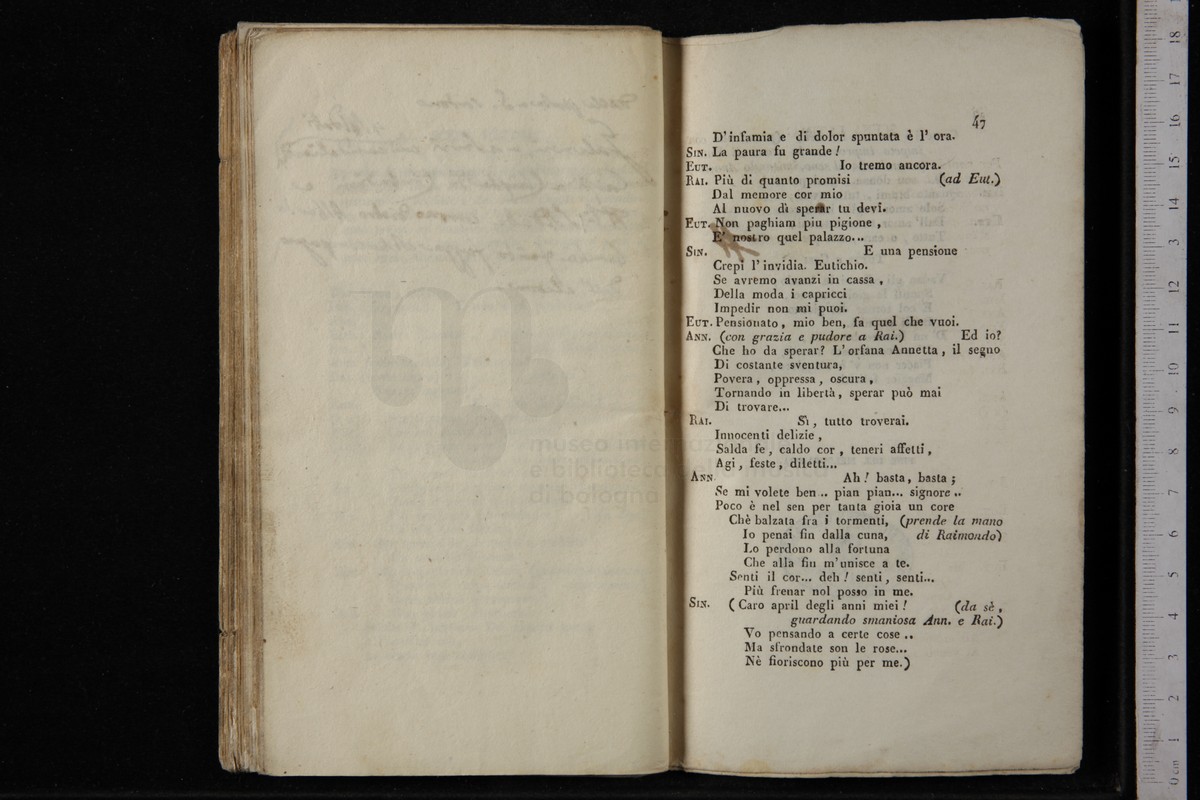 47
D'infamia e di dolor spuntata è l' ora.
SIN. La paura fu grande!
EUT. Io tremo ancora.
RAI. Più di quanto promisi (ad Eut.)
Dal memore cor mio
Al nuovo dì sperar tu devi.
EUT. Non paghiam piu pigione,
E' nostro quel palazzo...
SIN. E una pensione
Crepi l'invidia. Eutichio.
Se avremo avanzi in cassa,
Della moda i capricci
Impedir non mi puoi.
EUT. Pensionato, mio ben, fa quel che vuoi.
ANN. (con grazia e pudore a Rai.) Ed io?
Che ho da sperar? L'orfana Annetta, il segno
Di costante sventura,
Povera, oppressa, oscura,
Tornando in libertà, sperar può mai
Di trovare...
RAI. Sì, tutto troverai.
Innocenti delizie,
Salda fe, caldo cor, teneri affetti,
Agi, feste, diletti...
ANN. Ah! basta, basta;
Se mi volete ben.. pian pian... signore..
Poco è nel sen per tanta gioia un core
Chè balzata fra i tormenti, (prende la mano
Io penai fin dalla cuna, di Raimondo)
Lo perdono alla fortuna
Che alla fin m'unisce a te.
Senti il cor... deh! senti, senti...
Più frenar nol posso in me.
SIN. (Caro april degli anni miei! (da sè,
guardando smaniosa Ann. e Rai.)
Vo pensando a certe cose..
Ma sfrondate son le rose...
Nè fioriscono più per me.)
museo internazionale
e biblioteca della musica
di bologna
0 cm 1 2 3 4 5 6 7 8 9 10 11 12 13 14 15 16 17 18